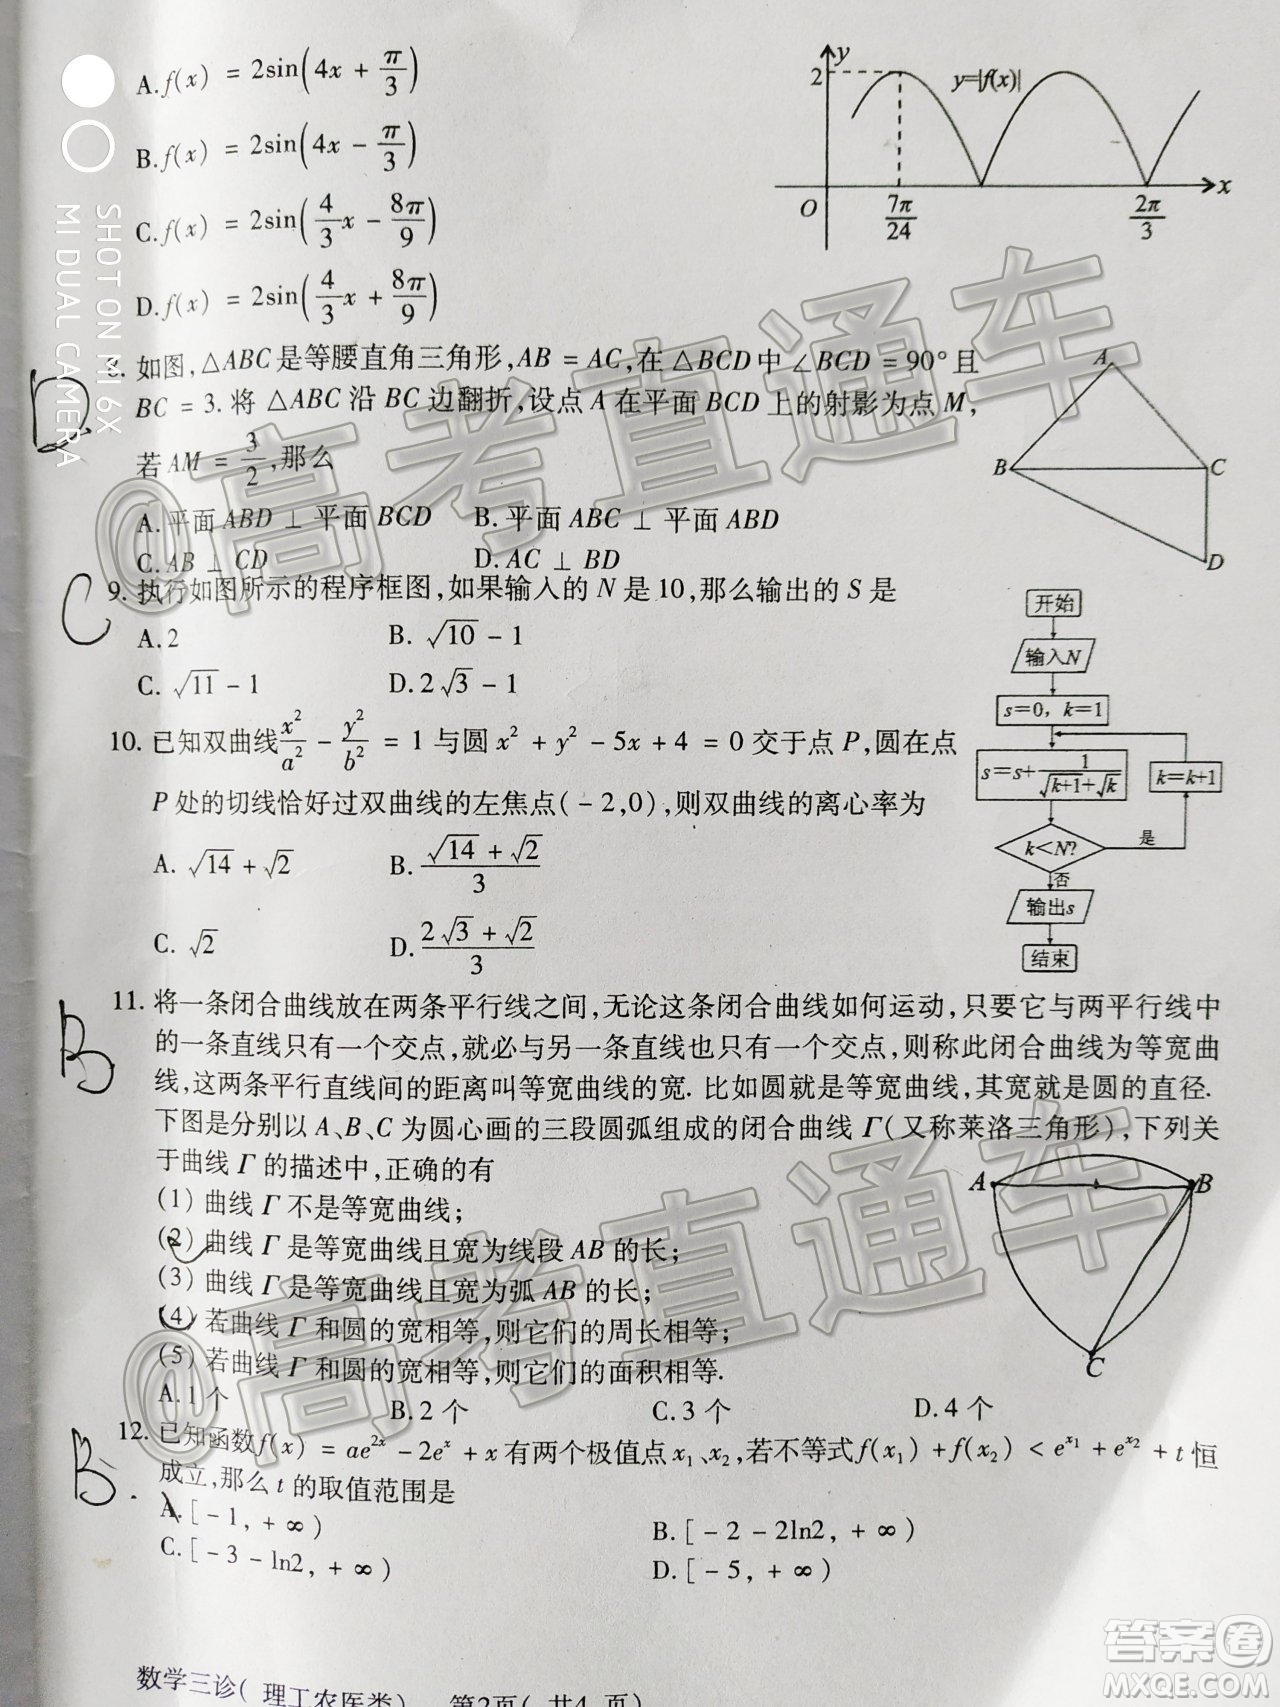 A. f(x) = 2sin(4x + π/3)
B. f(x) = 2sin(4x − π/3)
C. f(x) = 2sin(4/3 x − 8π/9)
D. f(x) = 2sin(4/3 x + 8π/9)
y
2
y=|f(x)|
O
7π/24
2π/3
x
8. 如图,△ABC是等腰直角三角形,AB = AC,在△BCD中∠BCD = 90°且
BC = 3. 将△ABC沿BC边翻折,设点A在平面BCD上的射影为点M,
若AM = 3/2,那么
A. 平面ABD ⊥ 平面BCD B. 平面ABC ⊥ 平面ABD
C. AB ⊥ CD D. AC ⊥ BD
A
B
C
D
D
9. 执行如图所示的程序框图,如果输入的N是10,那么输出的S是
A. 2 B. √10 − 1
C. √11 − 1 D. 2√3 − 1
C
开始
输入N
s=0, k=1
s=s+1/(√(k+1)+√k)
k=k+1
k<N?
是
否
输出s
结束
10. 已知双曲线x²/a² − y²/b² = 1与圆x² + y² − 5x + 4 = 0交于点P,圆在点
P处的切线恰好过双曲线的左焦点(−2,0),则双曲线的离心率为
A. √14 + √2 B. (√14 + √2)/3
C. √2 D. (2√3 + √2)/3
11. 将一条闭合曲线放在两条平行线之间,无论这条闭合曲线如何运动,只要它与两平行线中
的一条直线只有一个交点,就必与另一条直线也只有一个交点,则称此闭合曲线为等宽曲
线,这两条平行直线间的距离叫等宽曲线的宽. 比如圆就是等宽曲线,其宽就是圆的直径.
下图是分别以A、B、C为圆心画的三段圆弧组成的闭合曲线Γ(又称莱洛三角形),下列关
于曲线Γ的描述中,正确的有
(1) 曲线Γ不是等宽曲线;
(2) 曲线Γ是等宽曲线且宽为线段AB的长;
(3) 曲线Γ是等宽曲线且宽为弧AB的长;
(4) 若曲线Γ和圆的宽相等,则它们的周长相等;
(5) 若曲线Γ和圆的宽相等,则它们的面积相等.
A. 1个 B. 2个 C. 3个 D. 4个
B
A
B
C
12. 已知函数f(x) = ae²ˣ − 2eˣ + x有两个极值点x₁、x₂,若不等式f(x₁) + f(x₂) < e^x₁ + e^x₂ + t恒
成立,那么t的取值范围是
A. [−1, +∞) B. [−2 − 2ln2, +∞)
C. [−3 − ln2, +∞) D. [−5, +∞)
B
数学三诊( 理工农医类) 第2页( 共4 页)
SHOT ON MI 6X
MI DUAL CAMERA
@高考直通车
@高考直通车
答案圈
MXQE.COM